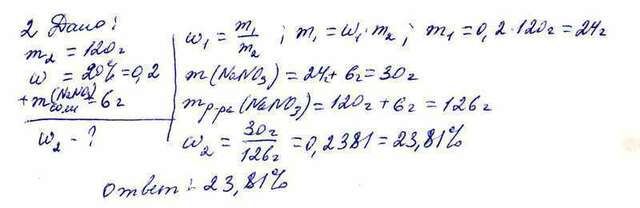 2 Дано:
m₂ = 120г
w = 20% = 0,2
+ m соли (NaNO₃) = 6г
w₂ - ?
w₁ = m₁/m₂ ; m₁ = w₁·m₂ ; m₁ = 0,2·120г = 24г
m(NaNO₃) = 24г + 6г = 30г
mр-ра(NaNO₃) = 120г + 6г = 126г
w₂ = 30г/126г = 0,2381 = 23,81%
Ответ: 23,81%